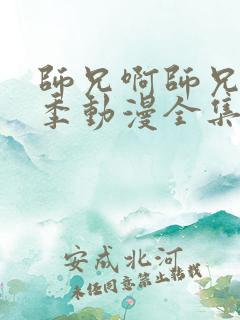 師兄啊師兄
季動漫全集
安成北河
未經同意禁止轉載